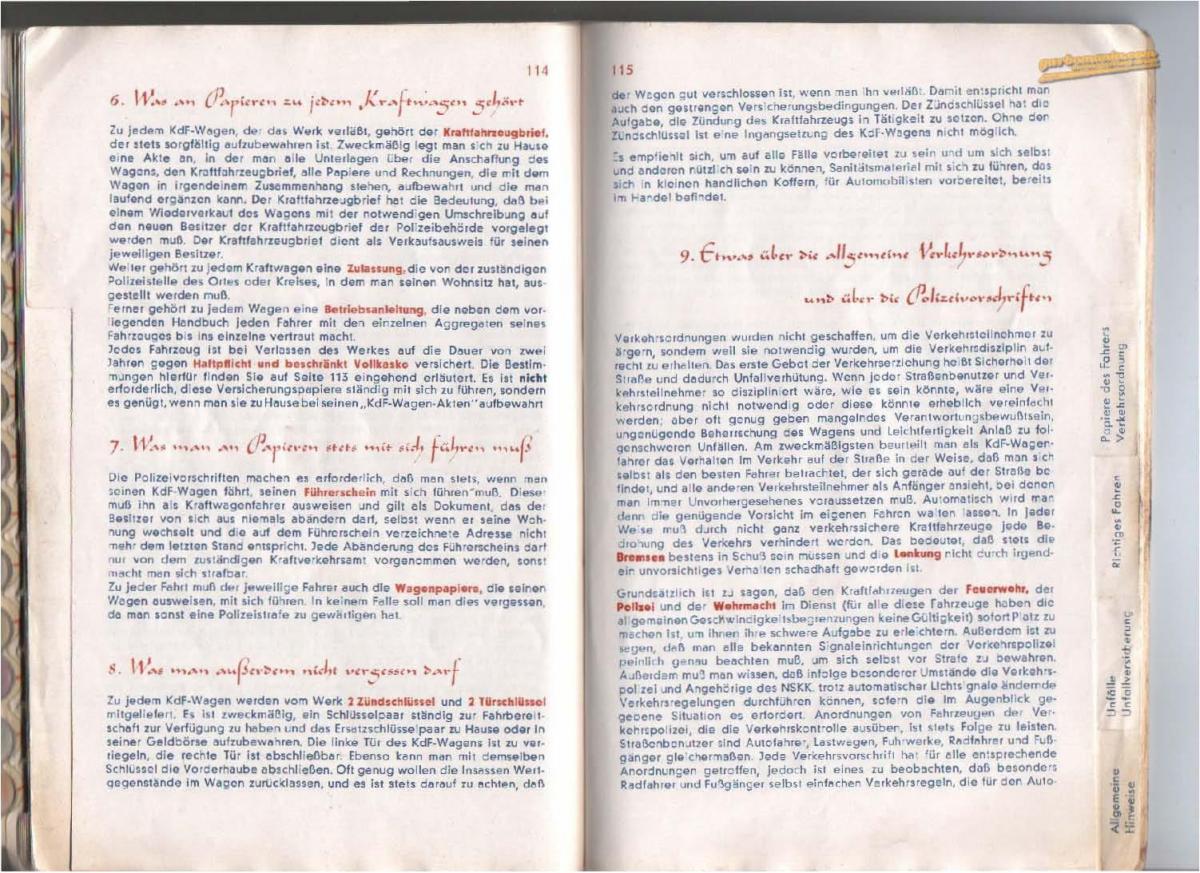 114
6. Was an Papieren zu jedem Kraftwagen gehört
Zu jedem KdF-Wagen, der das Werk verläßt, gehört der Kraftfahrzeugbrief,
der stets sorgfältig aufzubewahren ist. Zweckmäßig legt man sich zu Hause
eine Akte an, in der man alle Unterlagen über die Anschaffung des
Wagens, den Kraftfahrzeugbrief, alle Papiere und Rechnungen, die mit dem
Wagen in irgendeinem Zusammenhang stehen, aufbewahrt und die man
laufend ergänzen kann. Der Kraftfahrzeugbrief hat die Bedeutung, daß bei
einem Wiederverkauf des Wagens mit der notwendigen Umschreibung auf
den neuen Besitzer der Kraftfahrzeugbrief der Polizeibehörde vorgelegt
werden muß. Der Kraftfahrzeugbrief dient als Verkaufsausweis für seinen
jeweiligen Besitzer.
Weiter gehört zu jedem Kraftwagen eine Zulassung, die von der zuständigen
Polizeistelle des Ortes oder Kreises, in dem man seinen Wohnsitz hat, aus-
gestellt werden muß.
Ferner gehört zu jedem Wagen eine Betriebsanleitung, die neben dem vor-
liegenden Handbuch jeden Fahrer mit den einzelnen Aggregaten seines
Fahrzeuges bis ins einzelne vertraut macht.
Jedes Fahrzeug ist bei Verlassen des Werkes auf die Dauer von zwei
Jahren gegen Haftpflicht und beschränkt Vollkasko versichert. Die Bestim-
mungen hierfür finden Sie auf Seite 113 eingehend erläutert. Es ist nicht
erforderlich, diese Versicherungspapiere ständig mit sich zu führen, sondern
es genügt, wenn man sie zu Hause bei seinen „KdF-Wagen-Akten" aufbewahrt
7. Was man an Papieren stets mit sich führen muß
Die Polizeivorschriften machen es erforderlich, daß man stets, wenn man
seinen KdF-Wagen fährt, seinen Führerschein mit sich führen muß. Dieser
muß ihn als Kraftwagenfahrer ausweisen und gilt als Dokument, das der
Besitzer von sich aus niemals abändern darf, selbst wenn er seine Woh-
nung wechselt und die auf dem Führerschein verzeichnete Adresse nicht
mehr dem letzten Stand entspricht. Jede Abänderung des Führerscheins darf
nur von dem zuständigen Kraftverkehrsamt vorgenommen werden, sonst
macht man sich strafbar.
Zu jeder Fahrt muß der jeweilige Fahrer auch die Wagenpapiere, die seinen
Wagen ausweisen, mit sich führen. In keinem Falle soll man dies vergessen,
da man sonst eine Polizeistrafe zu gewärtigen hat.
8. Was man außerdem nicht vergessen darf
Zu jedem KdF-Wagen werden vom Werk 2 Zündschlüssel und 2 Türschlüssel
mitgeliefert. Es ist zweckmäßig, ein Schlüsselpaar ständig zur Fahrbereit-
schaft zur Verfügung zu haben und das Ersatzschlüsselpaar zu Hause oder in
seiner Geldbörse aufzubewahren. Die linke Tür des KdF-Wagens ist zu ver-
riegeln, die rechte Tür ist abschließbar. Ebenso kann man mit demselben
Schlüssel die Vorderhaube abschließen. Oft genug wollen die Insassen Wert-
gegenstände im Wagen zurücklassen, und es ist stets darauf zu achten, daß
115
der Wagen gut verschlossen ist, wenn man ihn verläßt. Damit entspricht man
auch den gestrengen Versicherungsbedingungen. Der Zündschlüssel hat die
Aufgabe, die Zündung des Kraftfahrzeugs in Tätigkeit zu setzen. Ohne den
Zündschlüssel ist eine Ingangsetzung des KdF-Wagens nicht möglich.
Es empfiehlt sich, um auf alle Fälle vorbereitet zu sein und um sich selbst
und anderen nützlich sein zu können, Sanitätsmaterial mit sich zu führen, das
sich in kleinen handlichen Koffern, für Automobilisten vorbereitet, bereits
im Handel befindet.
9. Etwas über die allgemeine Verkehrsordnung
und über die Polizeivorschriften
Verkehrsordnungen wurden nicht geschaffen, um die Verkehrsteilnehmer zu
ärgern, sondern weil sie notwendig wurden, um die Verkehrsdisziplin auf-
recht zu erhalten. Das erste Gebot der Verkehrserziehung heißt Sicherheit der
Straße und dadurch Unfallverhütung. Wenn jeder Straßenbenutzer und Ver-
kehrsteilnehmer so diszipliniert wäre, wie es sein könnte, wäre eine Ver-
kehrsordnung nicht notwendig oder diese könnte erheblich vereinfacht
werden; aber oft genug geben mangelndes Verantwortungsbewußtsein,
ungenügende Beherrschung des Wagens und Leichtfertigkeit Anlaß zu fol-
genschweren Unfällen. Am zweckmäßigsten beurteilt man als KdF-Wagen-
fahrer das Verhalten im Verkehr auf der Straße in der Weise, daß man sich
selbst als den besten Fahrer betrachtet, der sich gerade auf der Straße be-
findet, und alle anderen Verkehrsteilnehmer als Anfänger ansieht, bei denen
man immer Unvorhergesehenes voraussetzen muß. Automatisch wird man
dann die genügende Vorsicht im eigenen Fahren walten lassen. In jeder
Weise muß durch nicht ganz verkehrssichere Kraftfahrzeuge jede Be-
drohung des Verkehrs verhindert werden. Das bedeutet, daß stets die
Bremsen bestens in Schuß sein müssen und die Lenkung nicht durch irgend-
ein unvorsichtiges Verhalten schadhaft geworden ist.
Grundsätzlich ist zu sagen, daß den Kraftfahrzeugen der Feuerwehr, der
Polizei und der Wehrmacht im Dienst (für alle diese Fahrzeuge haben die
allgemeinen Geschwindigkeitsbegrenzungen keine Gültigkeit) sofort Platz zu
machen ist, um ihnen ihre schwere Aufgabe zu erleichtern. Außerdem ist zu
sagen, daß man alle bekannten Signaleinrichtungen der Verkehrspolizei
peinlich genau beachten muß, um sich selbst vor Strafe zu bewahren.
Außerdem muß man wissen, daß infolge besonderer Umstände die Verkehrs-
polizei und Angehörige des NSKK. trotz automatischer Lichtsignale ändernde
Verkehrsregelungen durchführen können, sofern die im Augenblick ge-
gebene Situation es erfordert. Anordnungen von Fahrzeugen der Ver-
kehrspolizei, die die Verkehrskontrolle ausüben, ist stets Folge zu leisten.
Straßenbenutzer sind Autofahrer, Lastwagen, Fuhrwerke, Radfahrer und Fuß-
gänger gleichermaßen. Jede Verkehrsvorschrift hat für alle entsprechende
Anordnungen getroffen, jedoch ist eines zu beobachten, daß besonders
Radfahrer und Fußgänger selbst einfachen Verkehrsregeln, die für den Auto-
Papiere des Fahrers
Verkehrsordnung
Richtiges Fahren
Unfälle
Unfallversicherung
Allgemeine
Hinweise